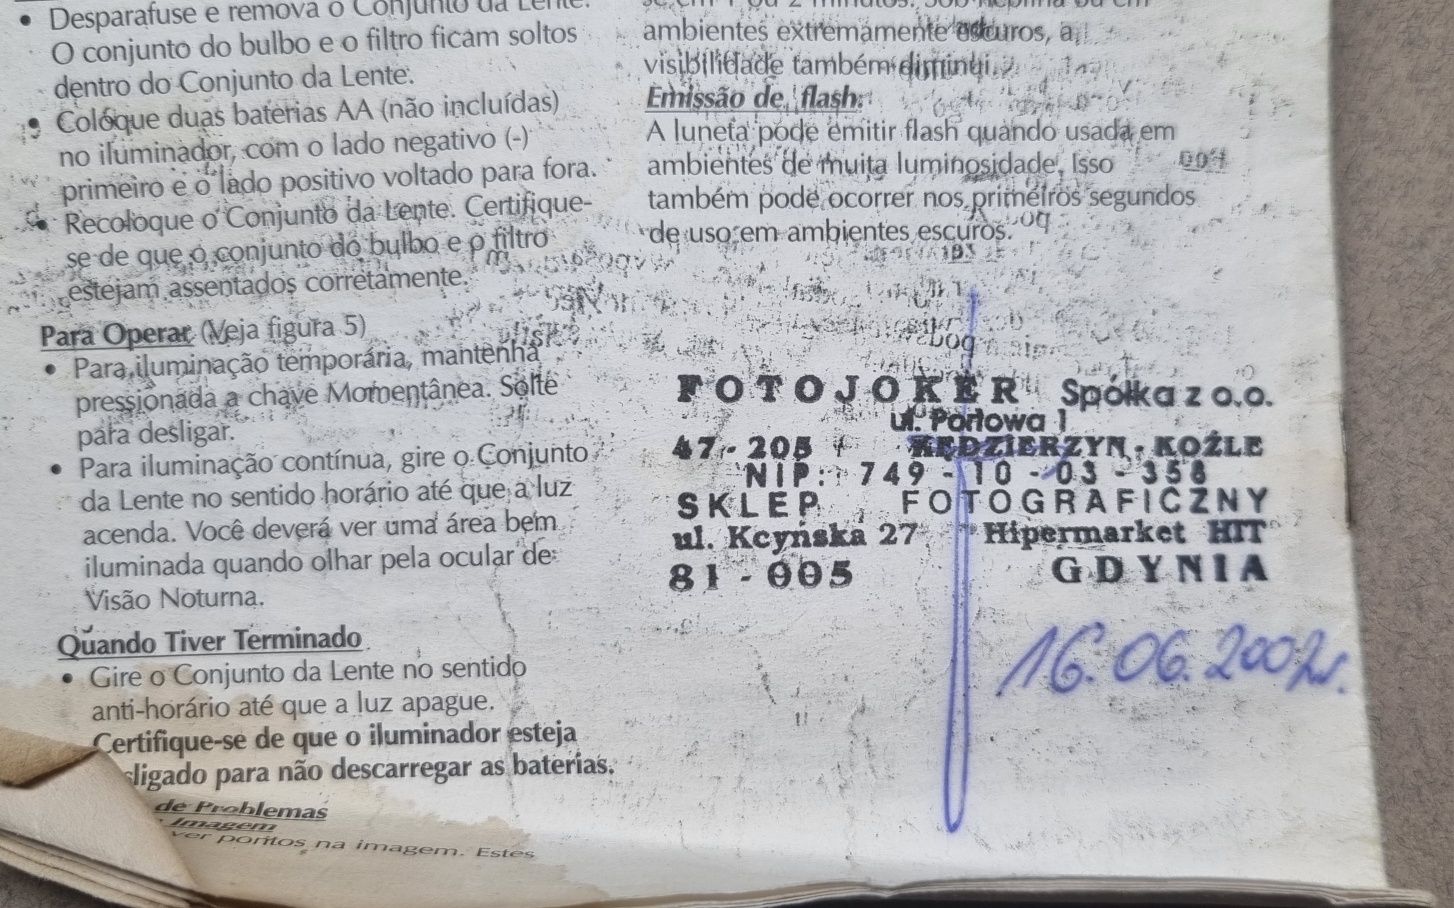 Desparafuse e remova o Conjunto da Lente.
O conjunto do bulbo e o filtro ficam soltos
dentro do Conjunto da Lente.
• Coloque duas baterias AA (não incluídas)
no iluminador, com o lado negativo (-)
primeiro e o lado positivo voltado para fora.
• Recoloque o Conjunto da Lente. Certifique-
se de que o conjunto do bulbo e o filtro
estejam assentados corretamente.
Para Operar (Veja figura 5)
• Para iluminação temporária, mantenha
pressionada a chave Momentânea. Solte
para desligar.
• Para iluminação contínua, gire o Conjunto
da Lente no sentido horário até que a luz
acenda. Você deverá ver uma área bem
iluminada quando olhar pela ocular de
Visão Noturna.
Quando Tiver Terminado
• Gire o Conjunto da Lente no sentido
anti-horário até que a luz apague.
Certifique-se de que o iluminador esteja
sligado para não descarregar as baterias.
de Problemas
Imagem
ver pontos na imagem. Estes
ambientes extremamente escuros, a
visibilidade também diminui.
Emissão de flash:
A luneta pode emitir flash quando usada em
ambientes de muita luminosidade. Isso
também pode ocorrer nos primeiros segundos
de uso em ambientes escuros.
FOTOJOKER Spółka z o.o.
ul. Portowa 1
47-205 KĘDZIERZYN-KOŹLE
NIP: 749-10-03-358
SKLEP FOTOGRAFICZNY
ul. Kcyńska 27 Hipermarket HIT
81-005 GDYNIA
16.06.2002r.